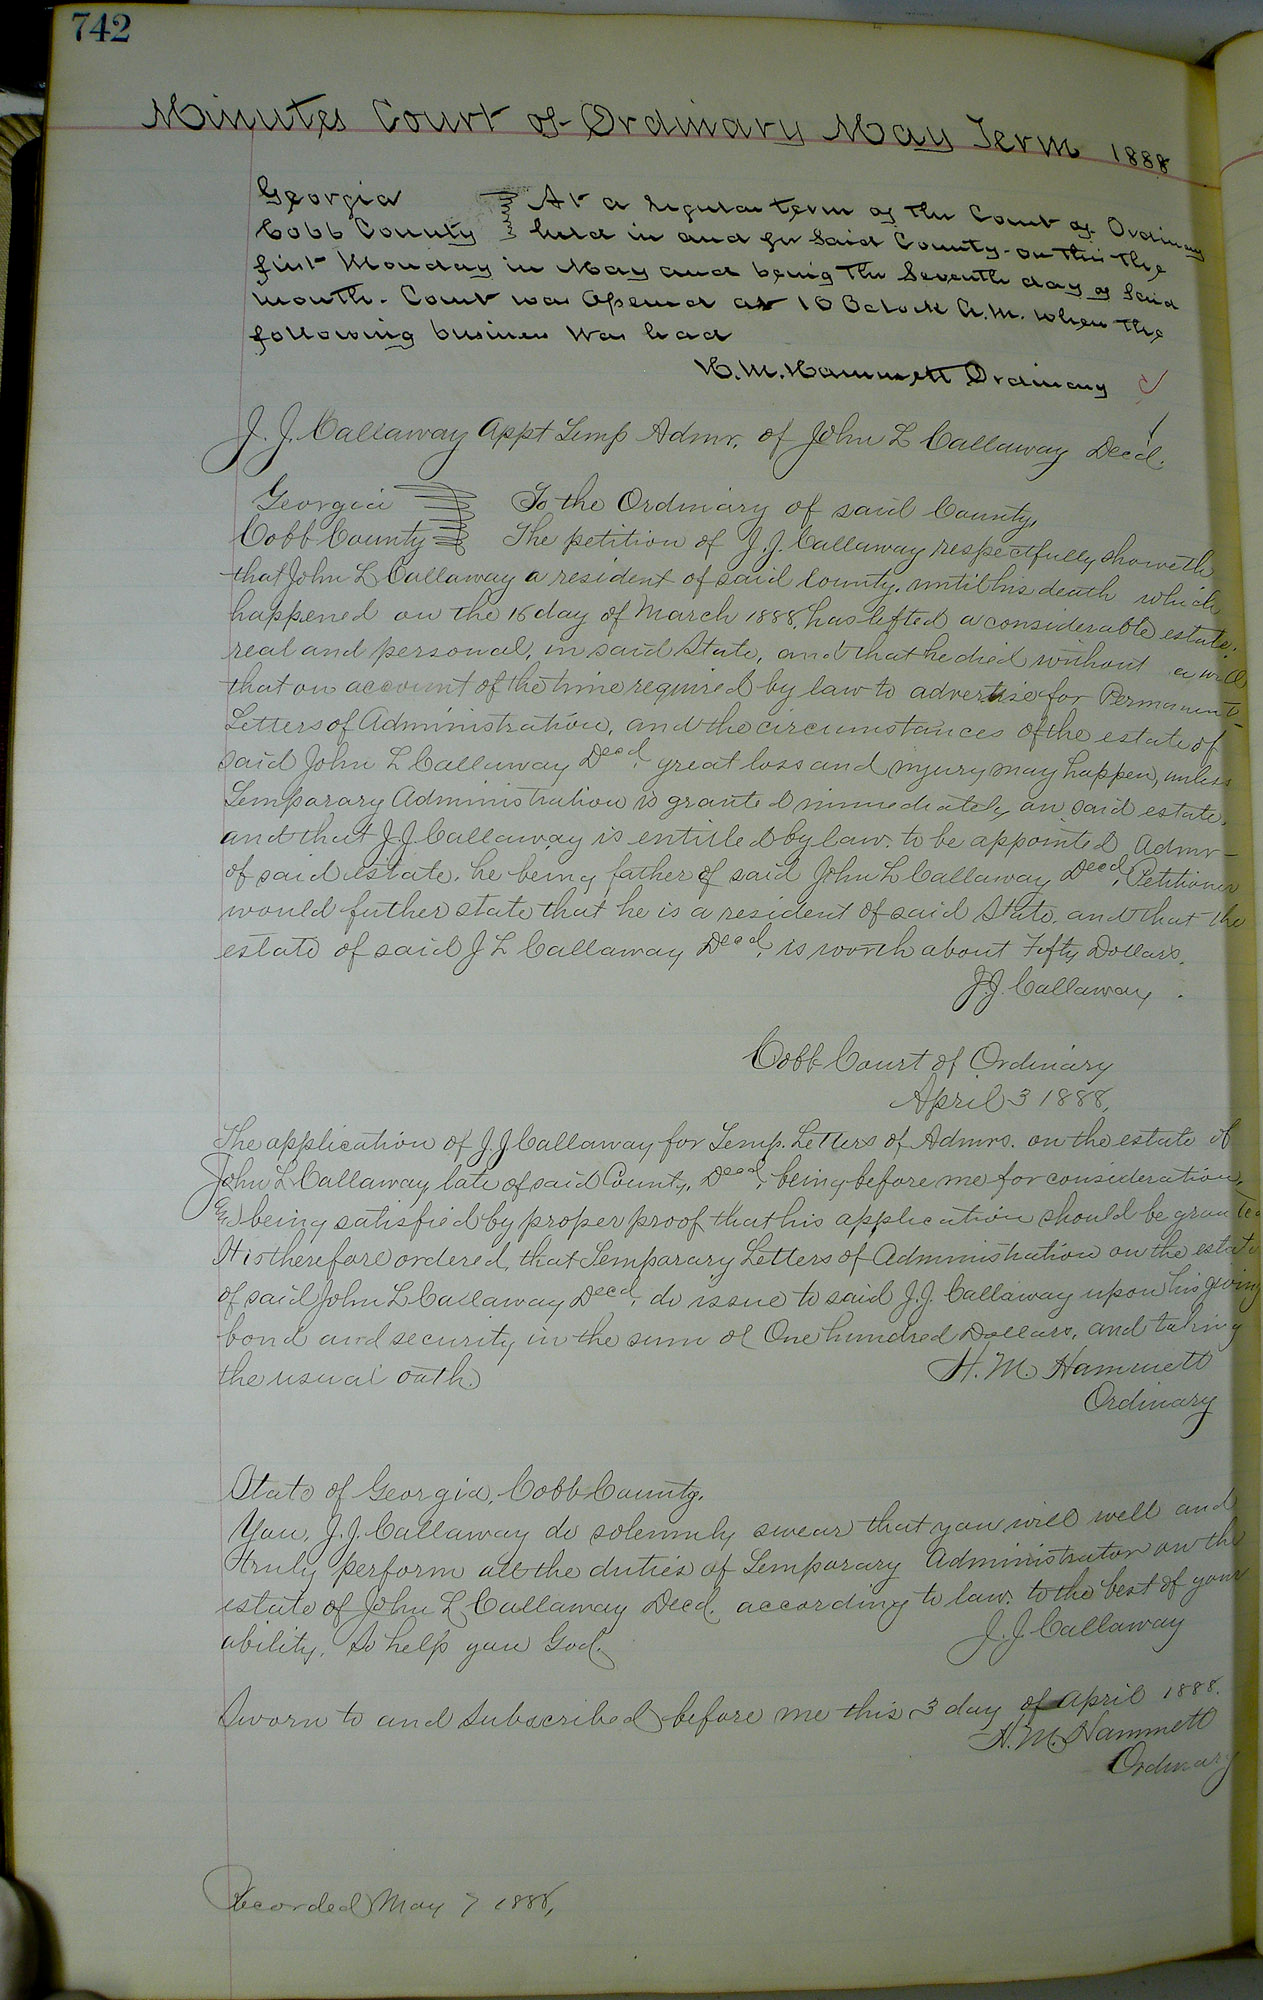 742
Minutes Court of Ordinary May Term 1888
Georgia At a regular term of the Court of Ordinary
Cobb County held in and for Said County on this the
first Monday in May and being the Seventh day of Said
month. Court was Opened at 10 Oclock A.M. when the
following business was had
H.M. Hammett Ordinary
J. J. Callaway Appt Temp Admr. of John L Callaway Decd.
Georgia To the Ordinary of said County,
Cobb County The petition of J. J. Callaway respectfully showeth
that John L Callaway a resident of said County, until his death which
happened on the 16 day of March 1888, has lefted a considerable estate,
real and personal, in said State, and that he died without a will
that on account of the time required by law to advertise for Permanent
Letters of Administration, and the circumstances of the estate of
said John L Callaway Decd, great loss and injury may happen, unless
Temparary Administration is granted immediately on said estate,
and that J. J. Callaway is entitled by law. to be appointed Admr
of said estate. he being father of said John L Callaway Decd, Petitioner
would futher state that he is a resident of said State. and that the
estate of said J L Callaway Decd, is worth about Fifty Dollars.
J. J. Callaway.
Cobb Court of Ordinary
April 3 1888,
The application of J. J. Callaway for Temp. Letters of Admrs. on the estate of
John L Callaway, late of said County, Decd, being before me for consideration,
and being satisfied by proper proof that his application should be granted
It is therefore ordered, that Temparary Letters of Administration on the estate
of said John L Callaway Decd, do issue to said J. J. Callaway upon his giving
bond and security in the sum of One hundred Dollars, and taking
the usual oath.
H. M. Hammett
Ordinary
State of Georgia, Cobb County.
You, J. J. Callaway do solemnly swear that you will well and
truly perform all the duties of Temparary Administrator on the
estate of John L Callaway Decd. according to law. to the best of your
ability. So help you God.
J. J. Callaway
Sworn to and Subscribed before me this 3 day of April 1888.
H. M. Hammett
Ordinary
Recorded May 7 1888,